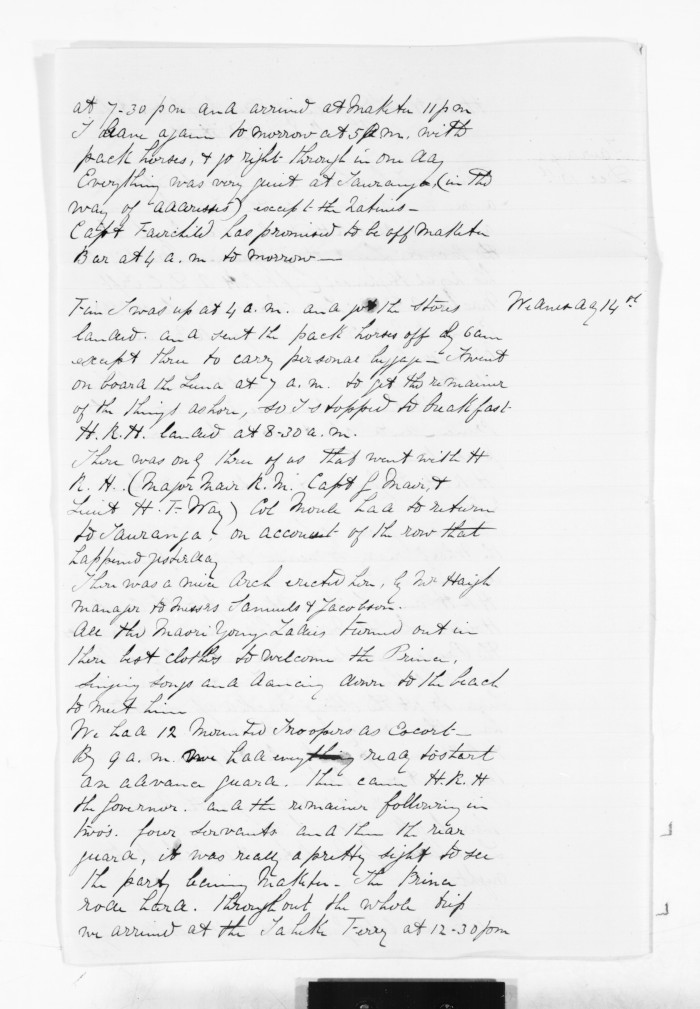 at 7-30 pm and arrived at Maketu 11 pm
I leave again to morrow at 5 a m. with
pack horses, & go right through in one day
Everything was very quiet at Tauranga, (in the
way of addresses) except the Natives -
Capt Fairchild has promised to be off Maketu
Bar at 4 a. m. to morrow —
Wednesday 14th
Fine I was up at 4 a. m. and got the stores
landed. and sent the pack horses off by 6 am
except three to carry personal baggage - I went
on board the Luna at 7 a. m. to get the remainder
of the things ashore, so I stopped to breakfast.
H. R. H. landed at 8-30 a. m.
There was only three of us that went with H
R. H. (Major Mair R. M. Capt G Mair, &
Lieut H. F. Way) Col Moule had to return
to Tauranga. on account of the row that
happened yesterday
There was a nice Arch erected here, by Mr Haigh
manager to Messrs Samuels & Jacobson.
All the Maori Young Ladies turned out in
there best clothes to welcome the Prince,
singing songs and dancing down to the beach
to meet him
We had 12 Mounted Troopers as Escort -
By 9 a. m. we had everything ready to start
an advance guard. then came H. R. H
the Governor. and the remainder following in
twos. four servants and then the rear
guard, it was really a pretty sight to see
the party leaving Maketu - The Prince
rode hard. throughout the whole trip
we arrived at the Taheke Ferry at 12-30 pm